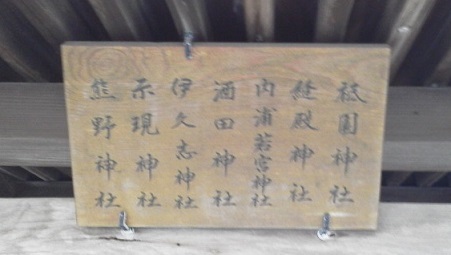 祇園神社
縫殿神社
内浦若宮神社
酒田神社
伊久志神社
示現神社
熊野神社